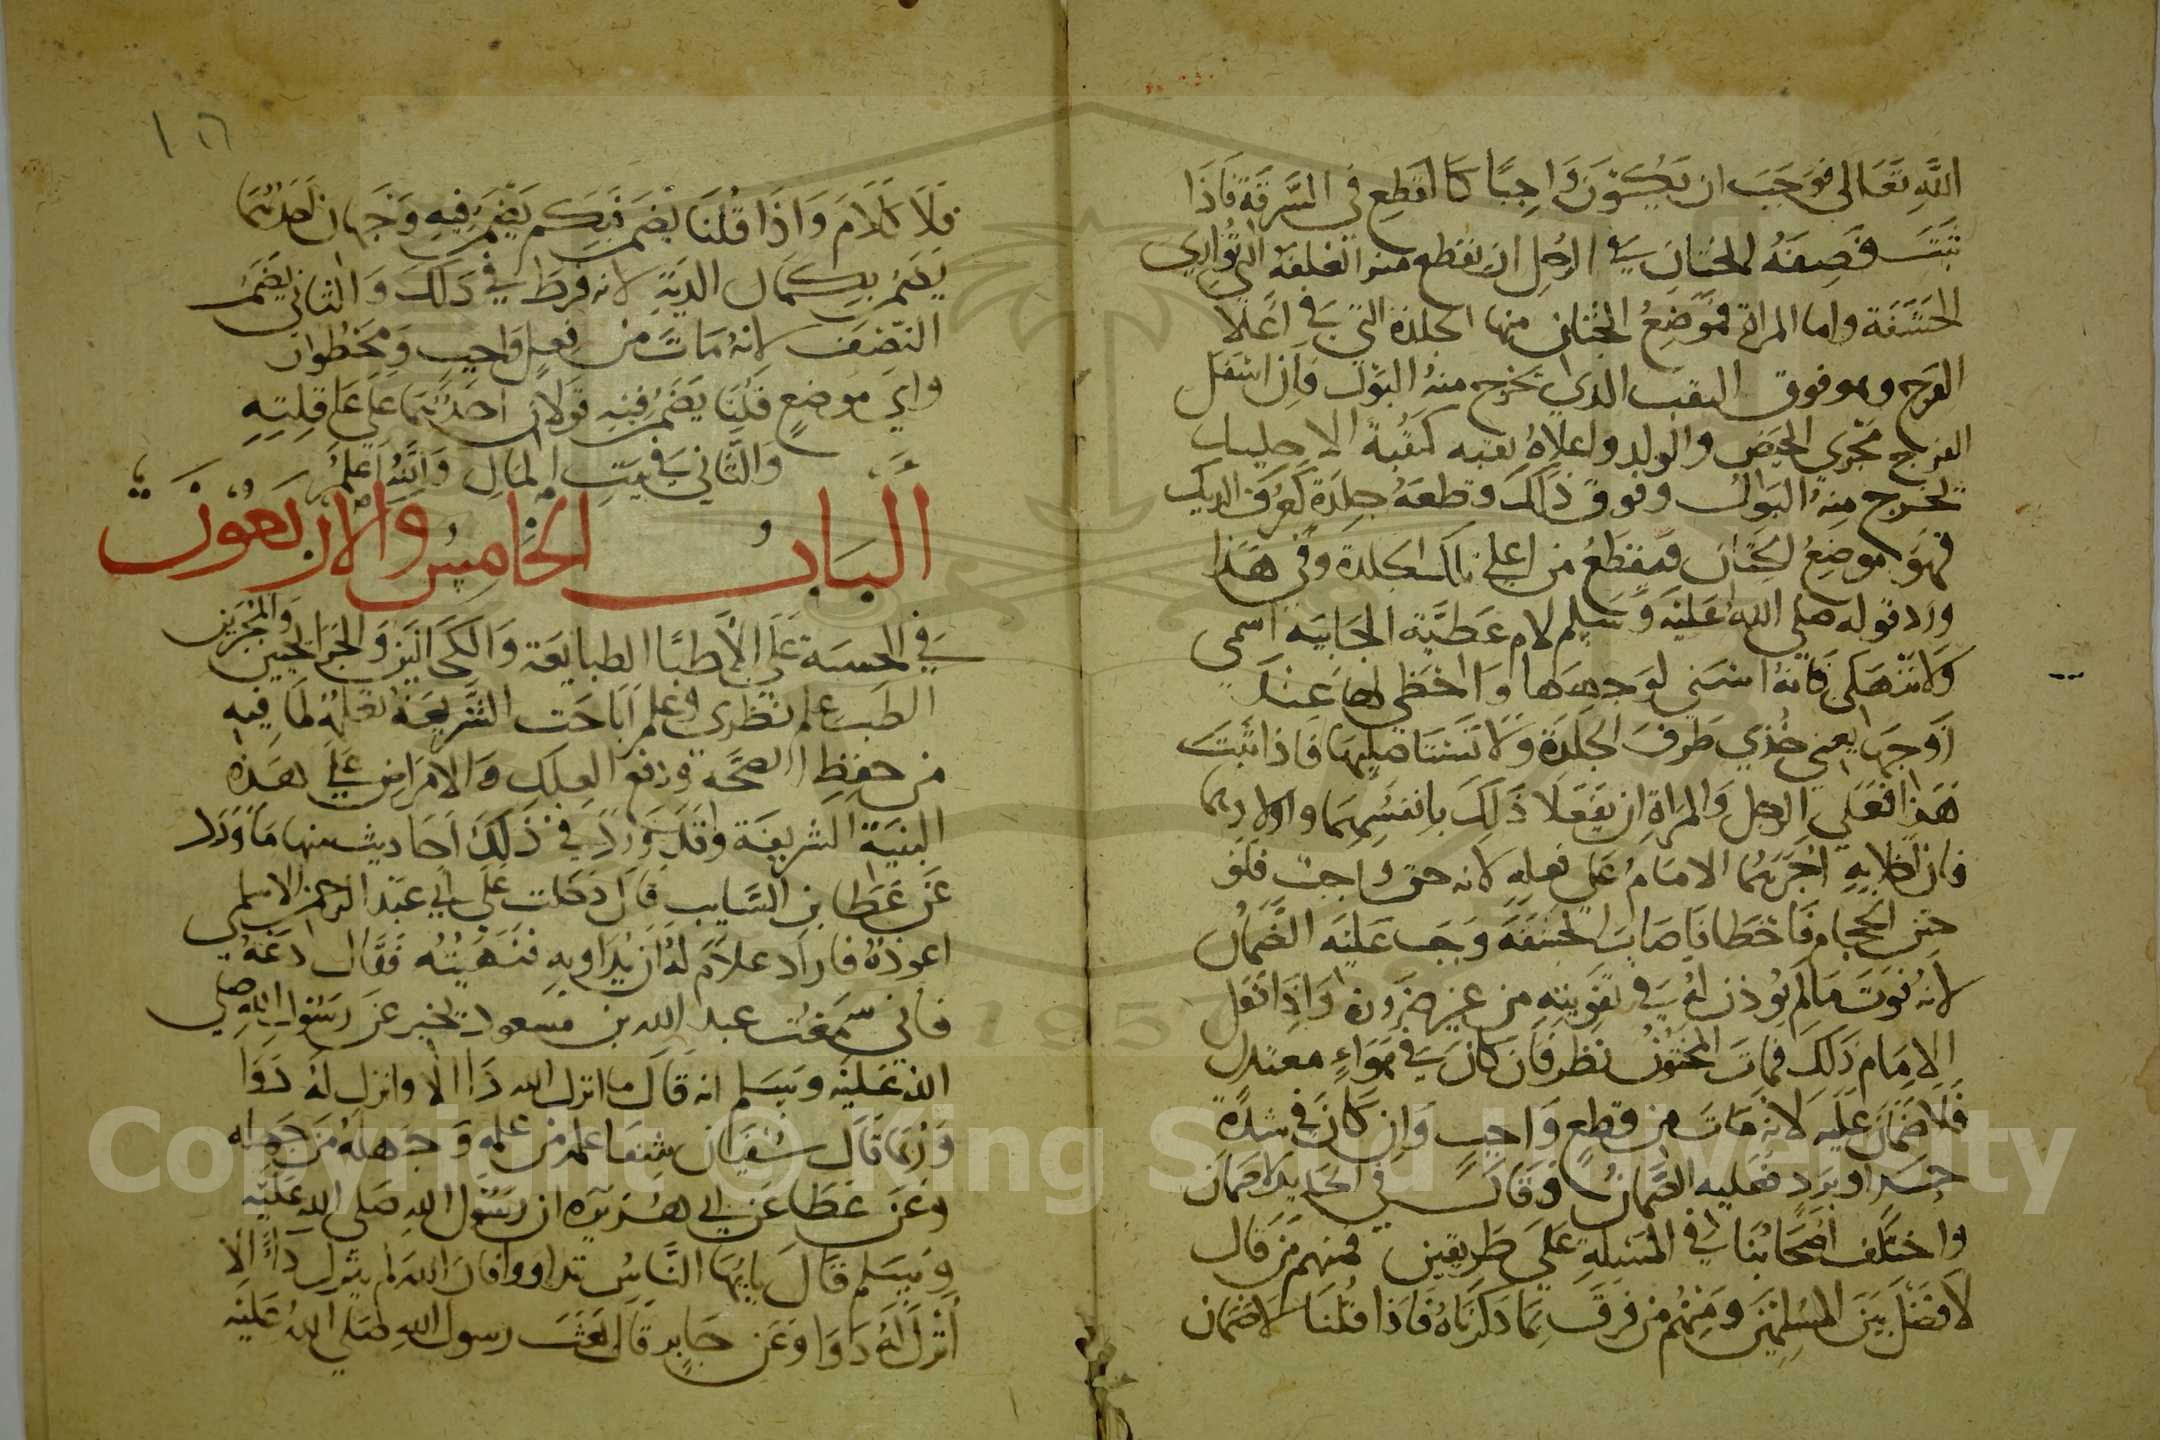 الله تعالى فوجب ان يكون واجبا كالقطع في السرقة فاذا
ثبت فصفة الختان في الرجل ان تقطع منه الغلفة التي تواري
الحشفة واما المراة فموضع الختان منها الجلدة التي في اعلا
الفرج وهو فوق الثقب الذي يخرج منه البول فان اسفل
الفرج مجرى الحيض والولد واعلاه ثقبه كثقبة الاحليل
يخرج منه البول وفوق ذلك وقطعه جلدة كعرف الديك
فهو موضع الختان فيقطع من اعلى تلك الجلدة وفي هذا
ورد قوله صلى الله عليه وسلم لام عطية الخافضة اشمي
ولا تنهكي فانه اسنى لوجهها واحظى لها عند
زوجها يعني خذي طرف الجلدة ولا تستاصليها فاذا ثبت
هذا فعلى الرجل والمراة ان يفعلا ذلك بانفسهما واولادهما
فان اخلا به اجبرهما الامام على فعله لانه حق واجب فلو
ختن الحجام فاخطا فاصاب الحشفة وجب عليه الضمان
لانه فوت ما لم يوذن له في تفويته من غير ضرورة واذا فعل
الامام ذلك فمات المختون نظر فان كان في هواء معتدل
فلا ضمان عليه لانه مات من قطع واجب وان كان في شدة
حر او برد فعليه الضمان وقال في الحد لا ضمان
واختلف اصحابنا في المسيلة على طريقين فمنهم من قال
لا فصل بين المسلتين ومنهم من فرق بما ذكرناه فاذا قلنا لا ضمان
١٥٦
فلا كلام واذا قلنا يضمن فبكم يضمن فيه وجهان احدهما
يضمن بكمال الدية لانه فرط في ذلك والثاني يضمن
النصف لانه مات من فعل واجب ومحظور
واي موضع قلنا يضمن فيه قولان احدهما على عاقلته
والثاني في بيت المال والله اعلم
الباب الخامس والاربعون
في الحسبة على الاطبا الطبايعة والكحالين والجرايحيين والمجبرين
الطب علم نظري وعلم اباحت الشريعة تعلمه لما فيه
من حفظ الصحة ودفع العلل والامراض على هذه
البنية الشريفة وقد ورد في ذلك احاديث منها ما ورد
عن عطا بن السايب قال دخلت على ابي عبد الرحمن الاسلمي
اعوده فاراد غلام له ان يداويه فنهيته فقال دعه
فاني سمعت عبد الله بن مسعود يخبر عن رسول الله صلى
الله عليه وسلم انه قال ما انزل الله دا الا وانزل له دوا
وربما قال سفيان شفا علمه من علمه وجهله من جهله
وعن عطا عن ابي هريرة ان رسول الله صلى الله عليه
وسلم قال يايها الناس تداووا فان الله لم ينزل دا الا
انزل له دوا وعن جابر قال بعث رسول الله صلى الله عليه
1957
Copyright © King Saud University